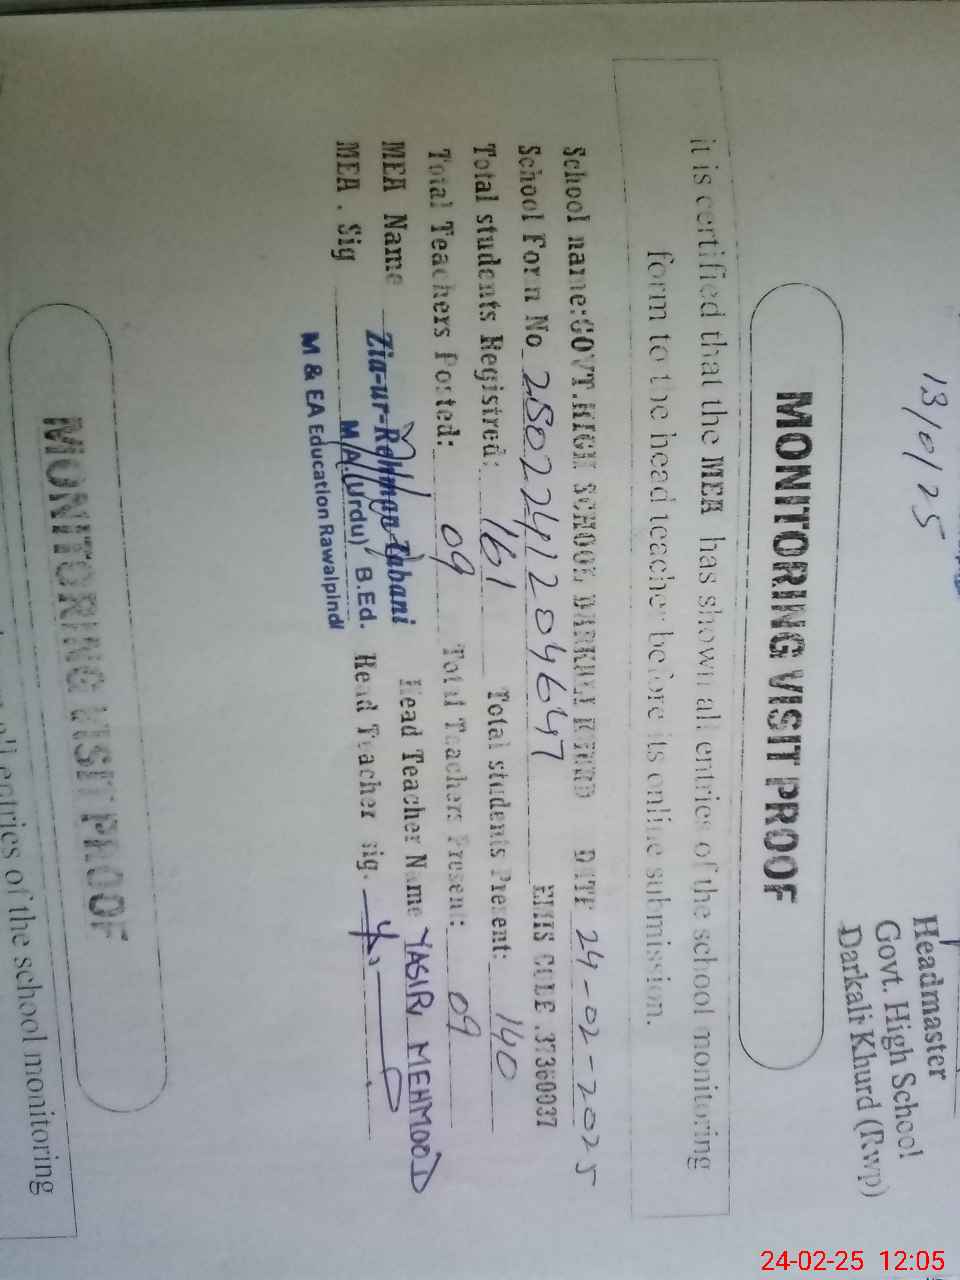 13/01/25
Headmaster
Govt. High School
Darkali Khurd (Rwp)
MONITORING VISIT PROOF
it is certified that the MEA has shown all entries of the school monitoring
form to the head teacher before its online submission.
School name:GOVT.HIGH SCHOOL DARKALI KHURD DATE 24-02-2025
School Form No 2502241204647 EMIS CODE .37360037
Total students Registred: 161 Total students Present: 140
Total Teachers Posted: 09 Total Teachers Present: 09
MEA Name Zia-ur-Rehman Tabani Head Teacher Name YASIR MEHMOOD
MEA . Sig M.A.(Urdu) B.Ed. Head Teacher sig.
M & EA Education Rawalpindi
MONITORING VISIT PROOF
all entries of the school monitoring
24-02-25 12:05